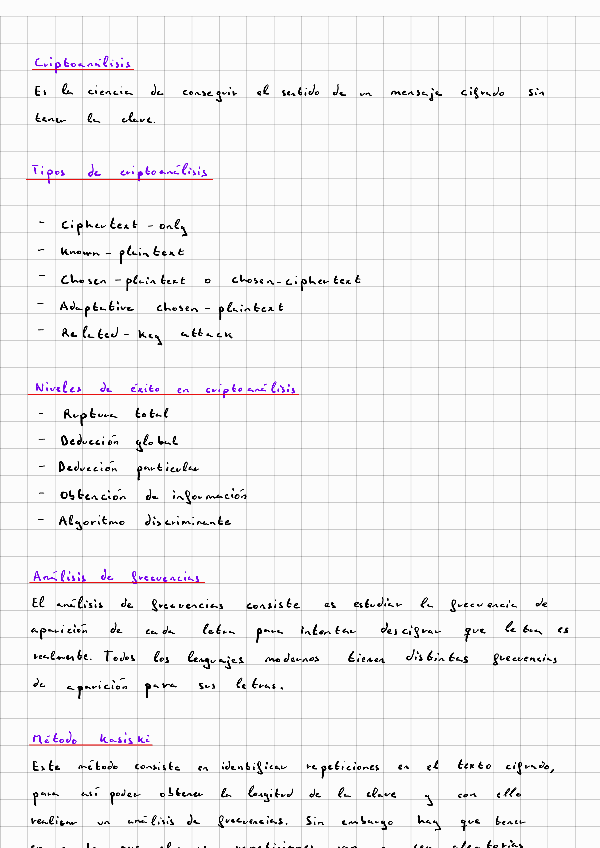 Criptoanálisis
Es la ciencia de conseguir el sentido de un mensaje cifrado sin
tener la clave.
Tipos de criptoanálisis
- Ciphertext-only
- Known-plaintext
- Chosen-plaintext o chosen-ciphertext
- Adaptative chosen-plaintext
- Related-Key attack
Niveles de éxito en criptoanálisis
- Ruptura total
- Deducción global
- Deducción particular
- Obtención de información
- Algoritmo discriminante
Análisis de frecuencias
El análisis de frecuencias consiste es estudiar la frecuencia de
aparición de cada letra para intentar descifrar que letra es
realmente. Todos los lenguajes modernos tienen distintas frecuencias
de aparición para sus letras.
Método Kasiski
Este método consiste en identificar repeticiones en el texto cifrado,
para así poder obtener la longitud de la clave y con ello
realizar un análisis de frecuencias. Sin embargo hay que tener